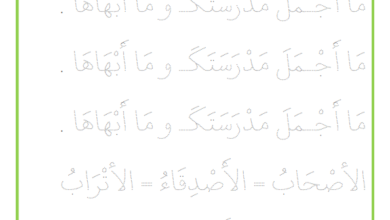 مَا أَجْمَلَ مَدْرَسَتَكَ و مَا أَبْهَاهَا .
مَا أَجْمَلَ مَدْرَسَتَكَ و مَا أَبْهَاهَا .
مَا أَجْمَلَ مَدْرَسَتَكَ و مَا أَبْهَاهَا .
الأَصْحَابُ = الأَصْدِقَاءُ = الأَتْرَابُ